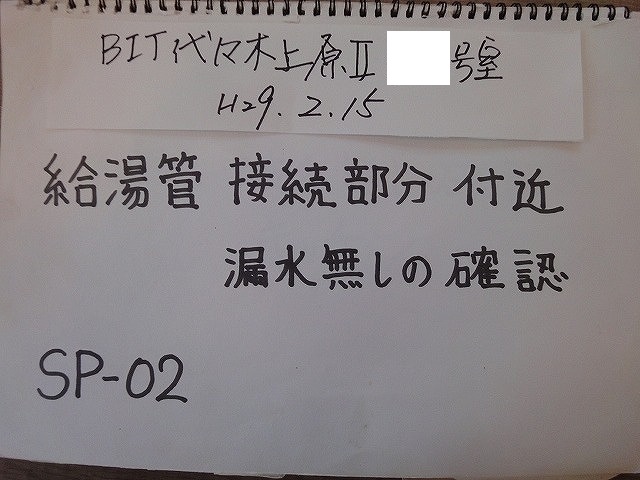 BIT代々木上原II 号室
H29.2.15
給湯管 接続部分 付近
漏水無しの確認
SP-02